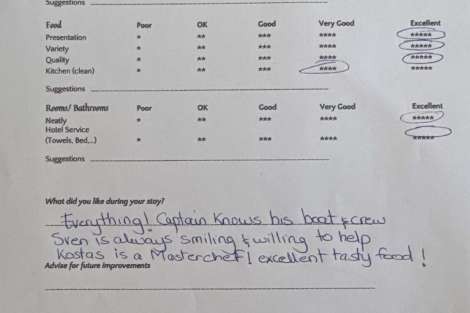 Suggestions
Food Poor OK Good Very Good Excellent
Presentation * ** *** **** *****
Variety * ** *** **** *****
Quality * ** *** **** *****
Kitchen (clean) * ** *** **** *****
Suggestions
Rooms/ Bathrooms Poor OK Good Very Good Excellent
Neatly * ** *** **** *****
Hotel Service
(Towels, Bed,..) * ** *** **** *****
Suggestions
What did you like during your stay?
Everything! Captain knows his boat & crew
Sven is always smiling & willing to help
Kostas is a Masterchef! excellent tasty food !
Advise for future improvements